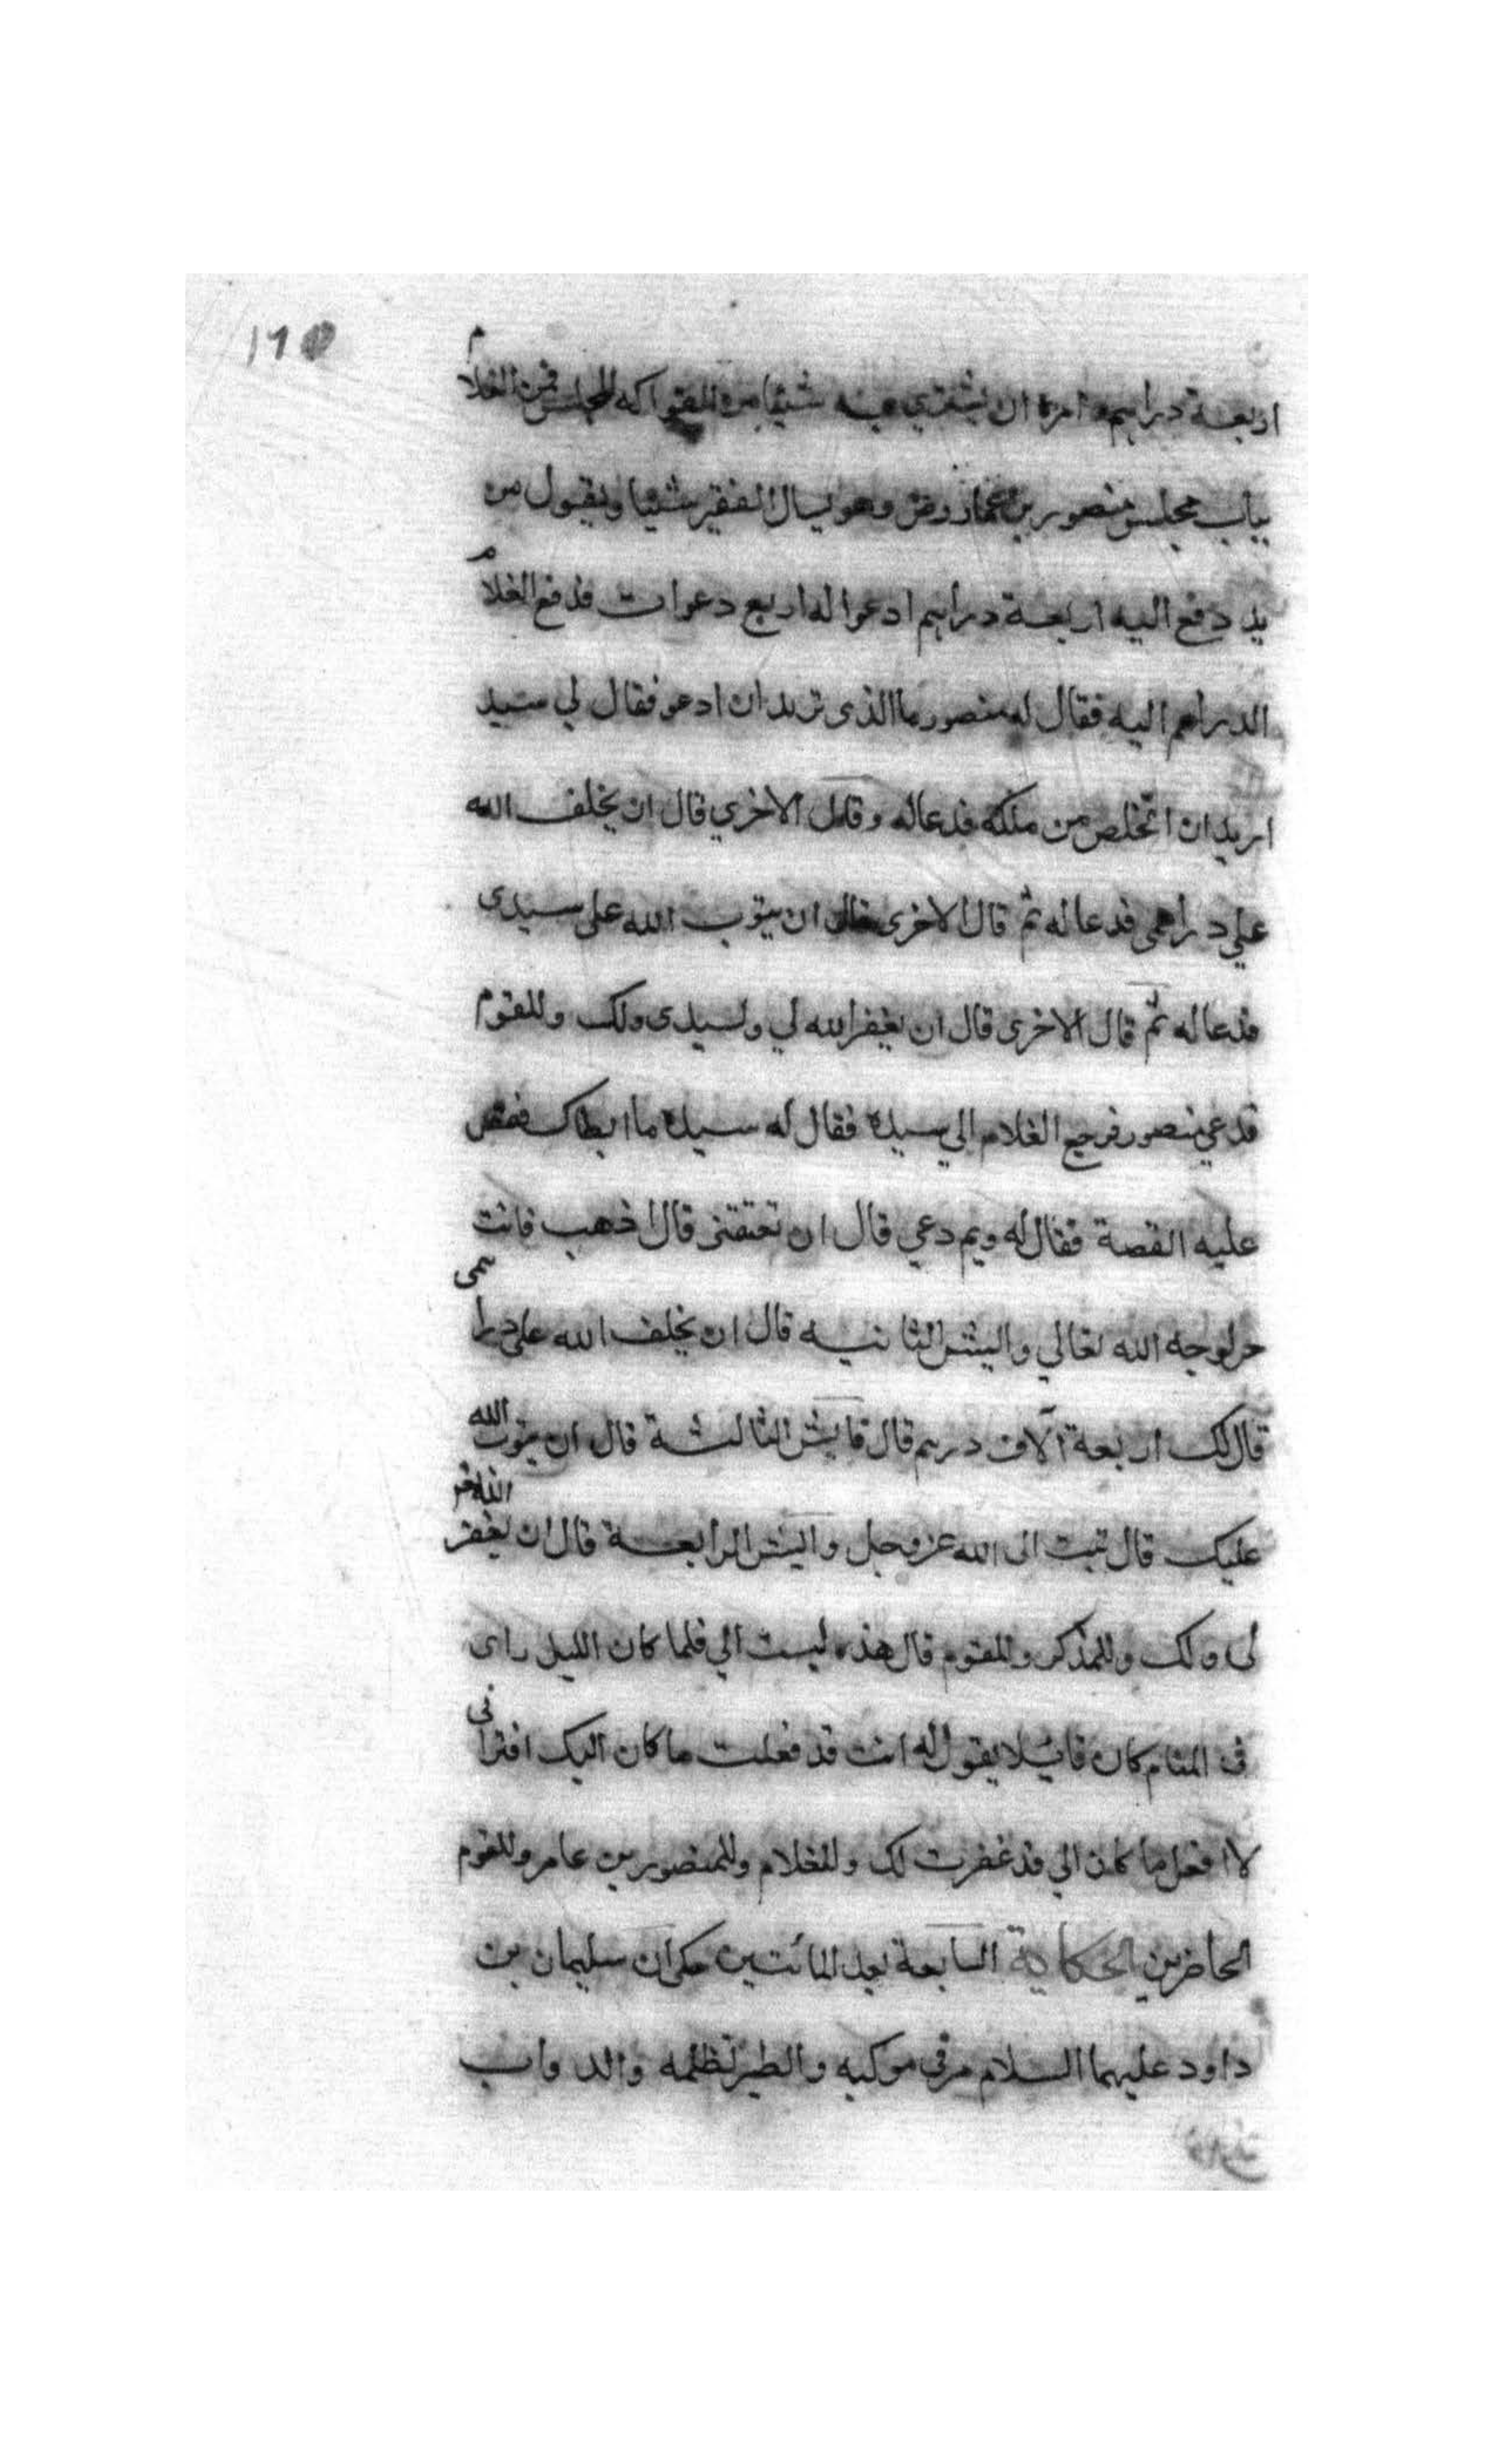 اربعة دراهم وامره ان يشتري به شيئا من الفواكه للمجلس فمر الغلام
بباب مجلس منصور بن عمار وهو يسال الفقير شيئا ويقول من
يد دفع اليه اربعة دراهم ادعوا له اربع دعوات فدفع الغلام
الدراهم اليه فقال له منصور ما الذى تريد ان ادعو فقال لي سيد
اريد ان اتخلص من ملكه فدعاله وقال الاخري قال ان يخلف الله
علي دراهمى فدعا له ثم قال الاخرى قال ان يتوب الله على سيدى
فدعا له ثم قال الاخرى قال ان يغفر الله لي ولسيدى ولك وللقوم
فدعي منصور فرجع الغلام الي سيده فقال له سيده ما ابطاك فقص
عليه القصة فقال له وبم دعي قال ان تعتقنى قال اذهب فانت
حر لوجه الله تعالي وايش الثانيه قال ان يخلف الله على دراهمى
قال لك اربعة آلاف درهم قال فايش الثالثة قال ان يتوب الله
عليك قال تبت الى الله عز وجل وايش الرابعة قال ان يغفر الله
لى ولك وللمذكر وللقوم قال هذه ليست الي فلما كان الليل راى
فى المنام كان قايلا يقول له انت قد فعلت ما كان اليك افترانى
لا افعل ما كان الي قد غفرت لك وللغلام وللمنصور بن عامر وللقوم
الحاضرين الحكاية السابعة بعد المائتين حكى ان سليمان بن
داود عليهما السلام مر فى موكبه والطير تظلمه والدواب